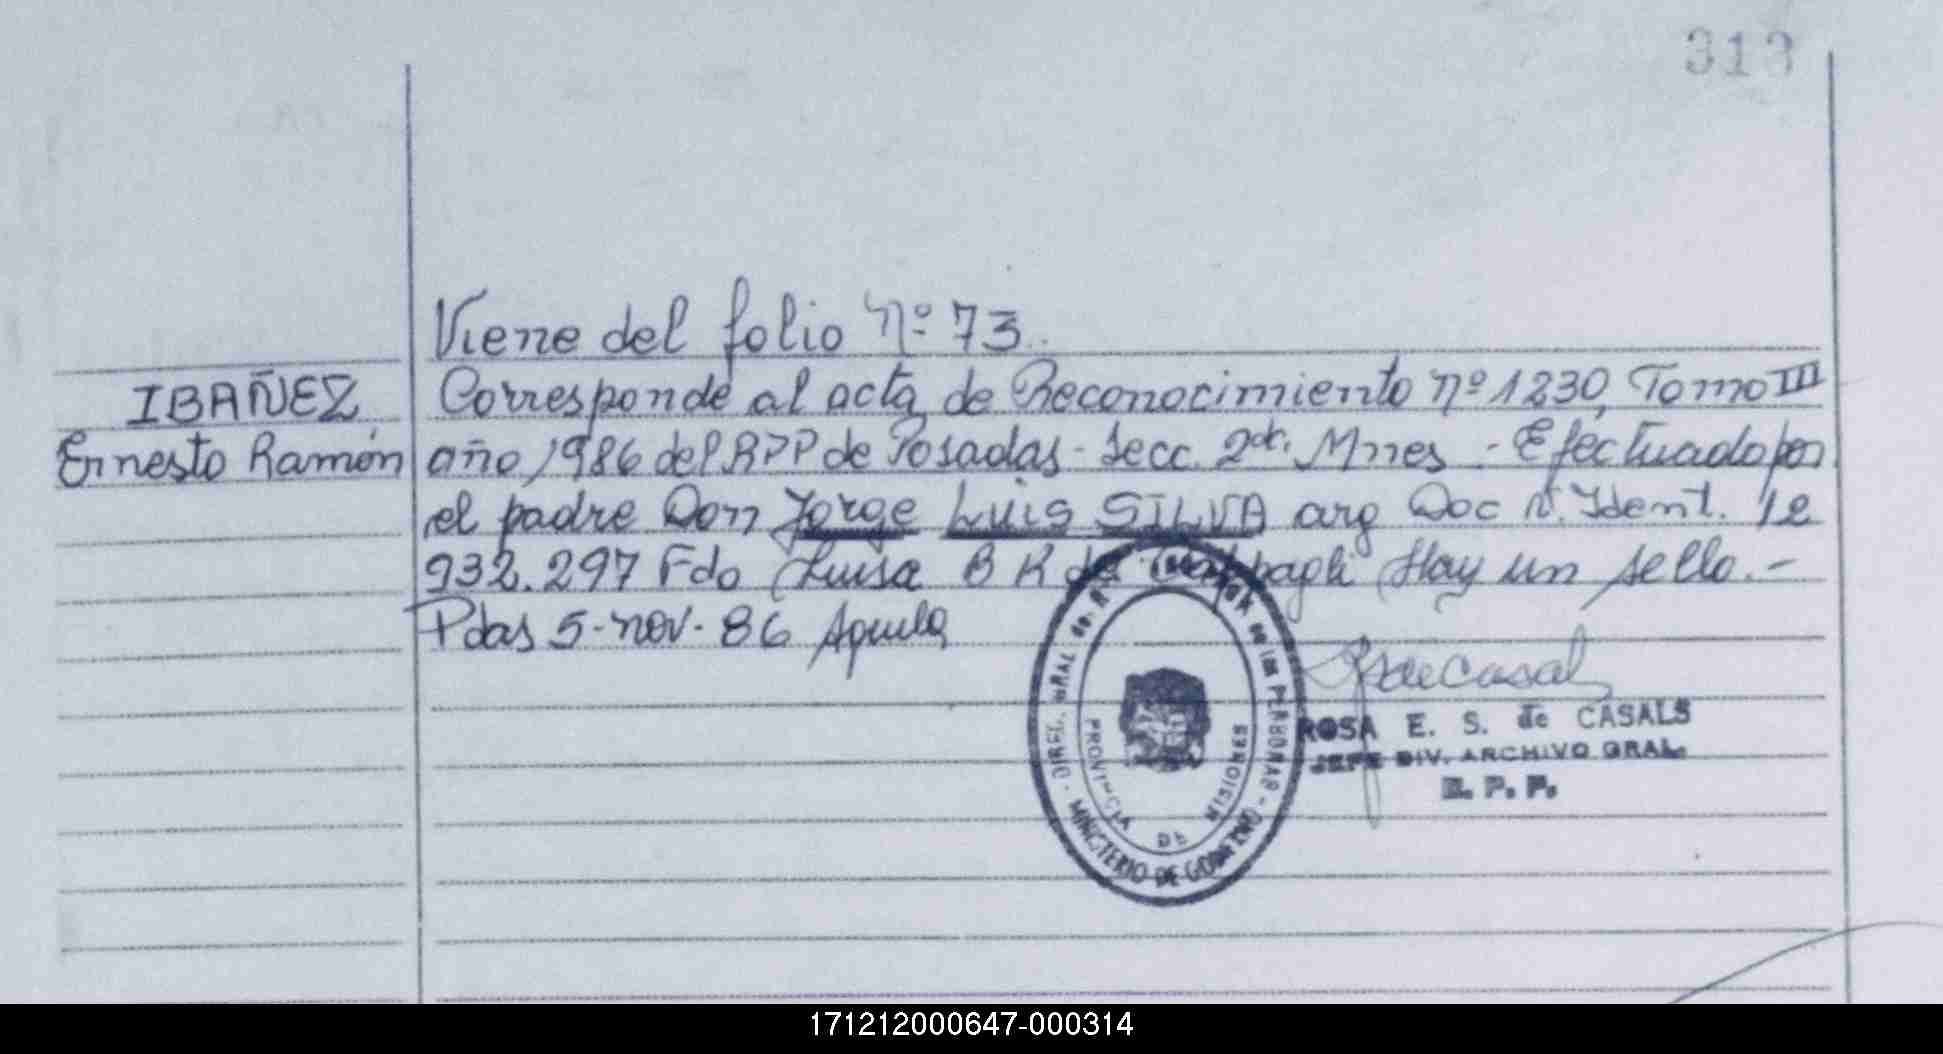 313
Viene del folio Nº 73.
IBAÑEZ,
Ernesto Ramón
Corresponde al acta de Reconocimiento nº 1230, Tomo III
año 1986 del RPP de Posadas - Secc. 2da. Mnes - Efectuado por
el padre Don Jorge Luis SILVA arg Doc N. Ident. 12
932.297 Fdo Luisa B R de Hay un sello.-
Pdas 5-nov-86
ROSA E. S. de CASALS
JEFE DIV. ARCHIVO GRAL.
R. P. P.
DIREC. GRAL de las PERSONAS - MINISTERIO DE GOBIERNO -
PROVINCIA DE MISIONES
171212000647-000314